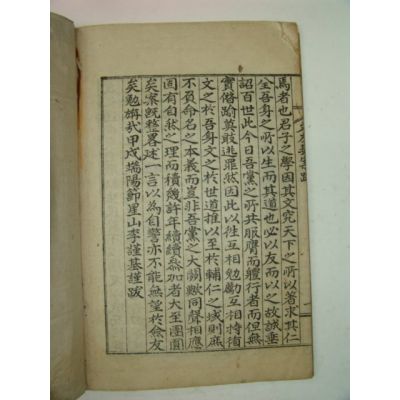 馬者也君子之學因其文究天下之所以著求其仁
全吾身之所以生而其道也必以友而以之故誠垂
詔百世此今日吾黨之所共服膺而軆行者而但無
實僭踰莫敢逃罪然因此以徃互相勉勵互相持循
文之於吾身文之於世道推以至於輔仁之域則庶
不負命名之本義而豈非吾黨之大關歟同聲相應
固有自然之理而積幾許年續續叅加者大至團圓
矣案旣整畧述一言以爲自警亦不能無望於僉友
矣勉旃哉甲戌端陽節星山李謹基謹跋